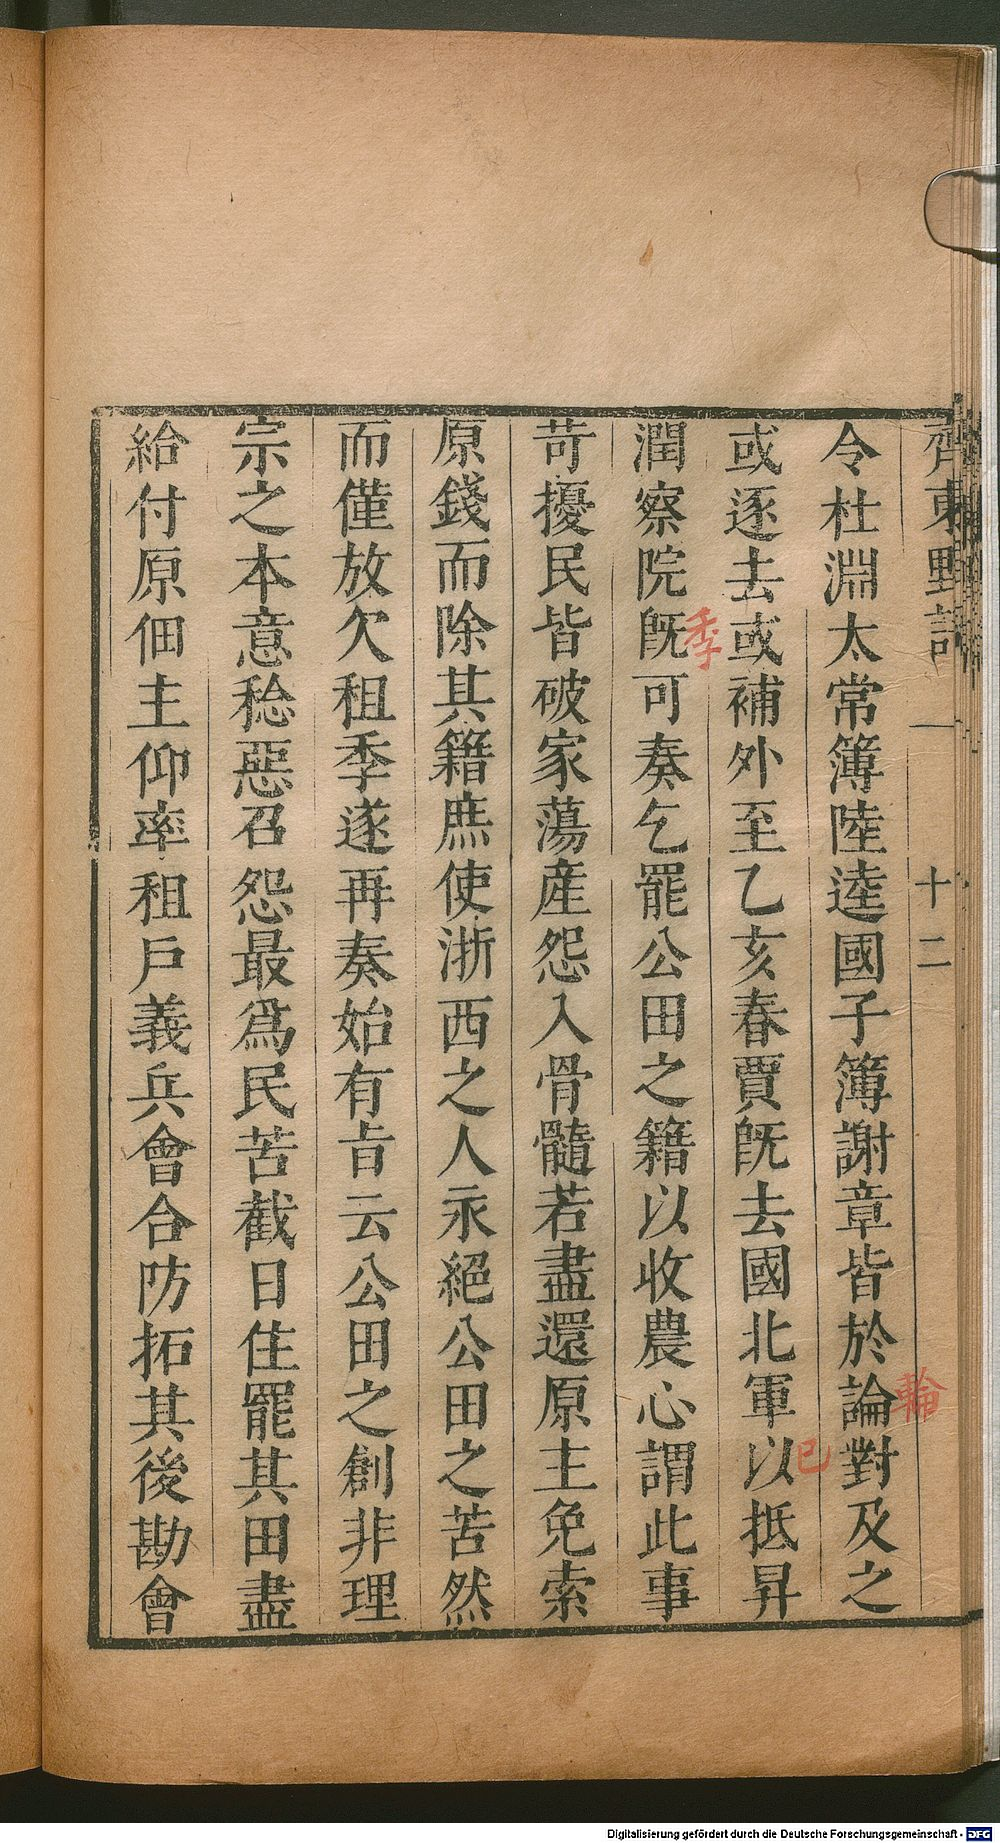 齊東野語 一 十二
令杜淵太常簿陸逵國子簿謝章皆於論對及之
輪
或逐去或補外至乙亥春賈旣去國北軍以抵昇
已
潤察院旣可奏乞罷公田之籍以收農心謂此事
季
苛擾民皆破家蕩産怨入骨髓若盡還原主免索
原錢而除其籍庶使浙西之人永絕公田之苦然
而僅放欠租季遂再奏始有㫖云公田之創非理
宗之本意稔惡召怨最爲民苦截日住罷其田盡
給付原佃主仰率租戶義兵會合防拓其後勘會
Digitalisierung gefördert durch die Deutsche Forschungsgemeinschaft - DFG